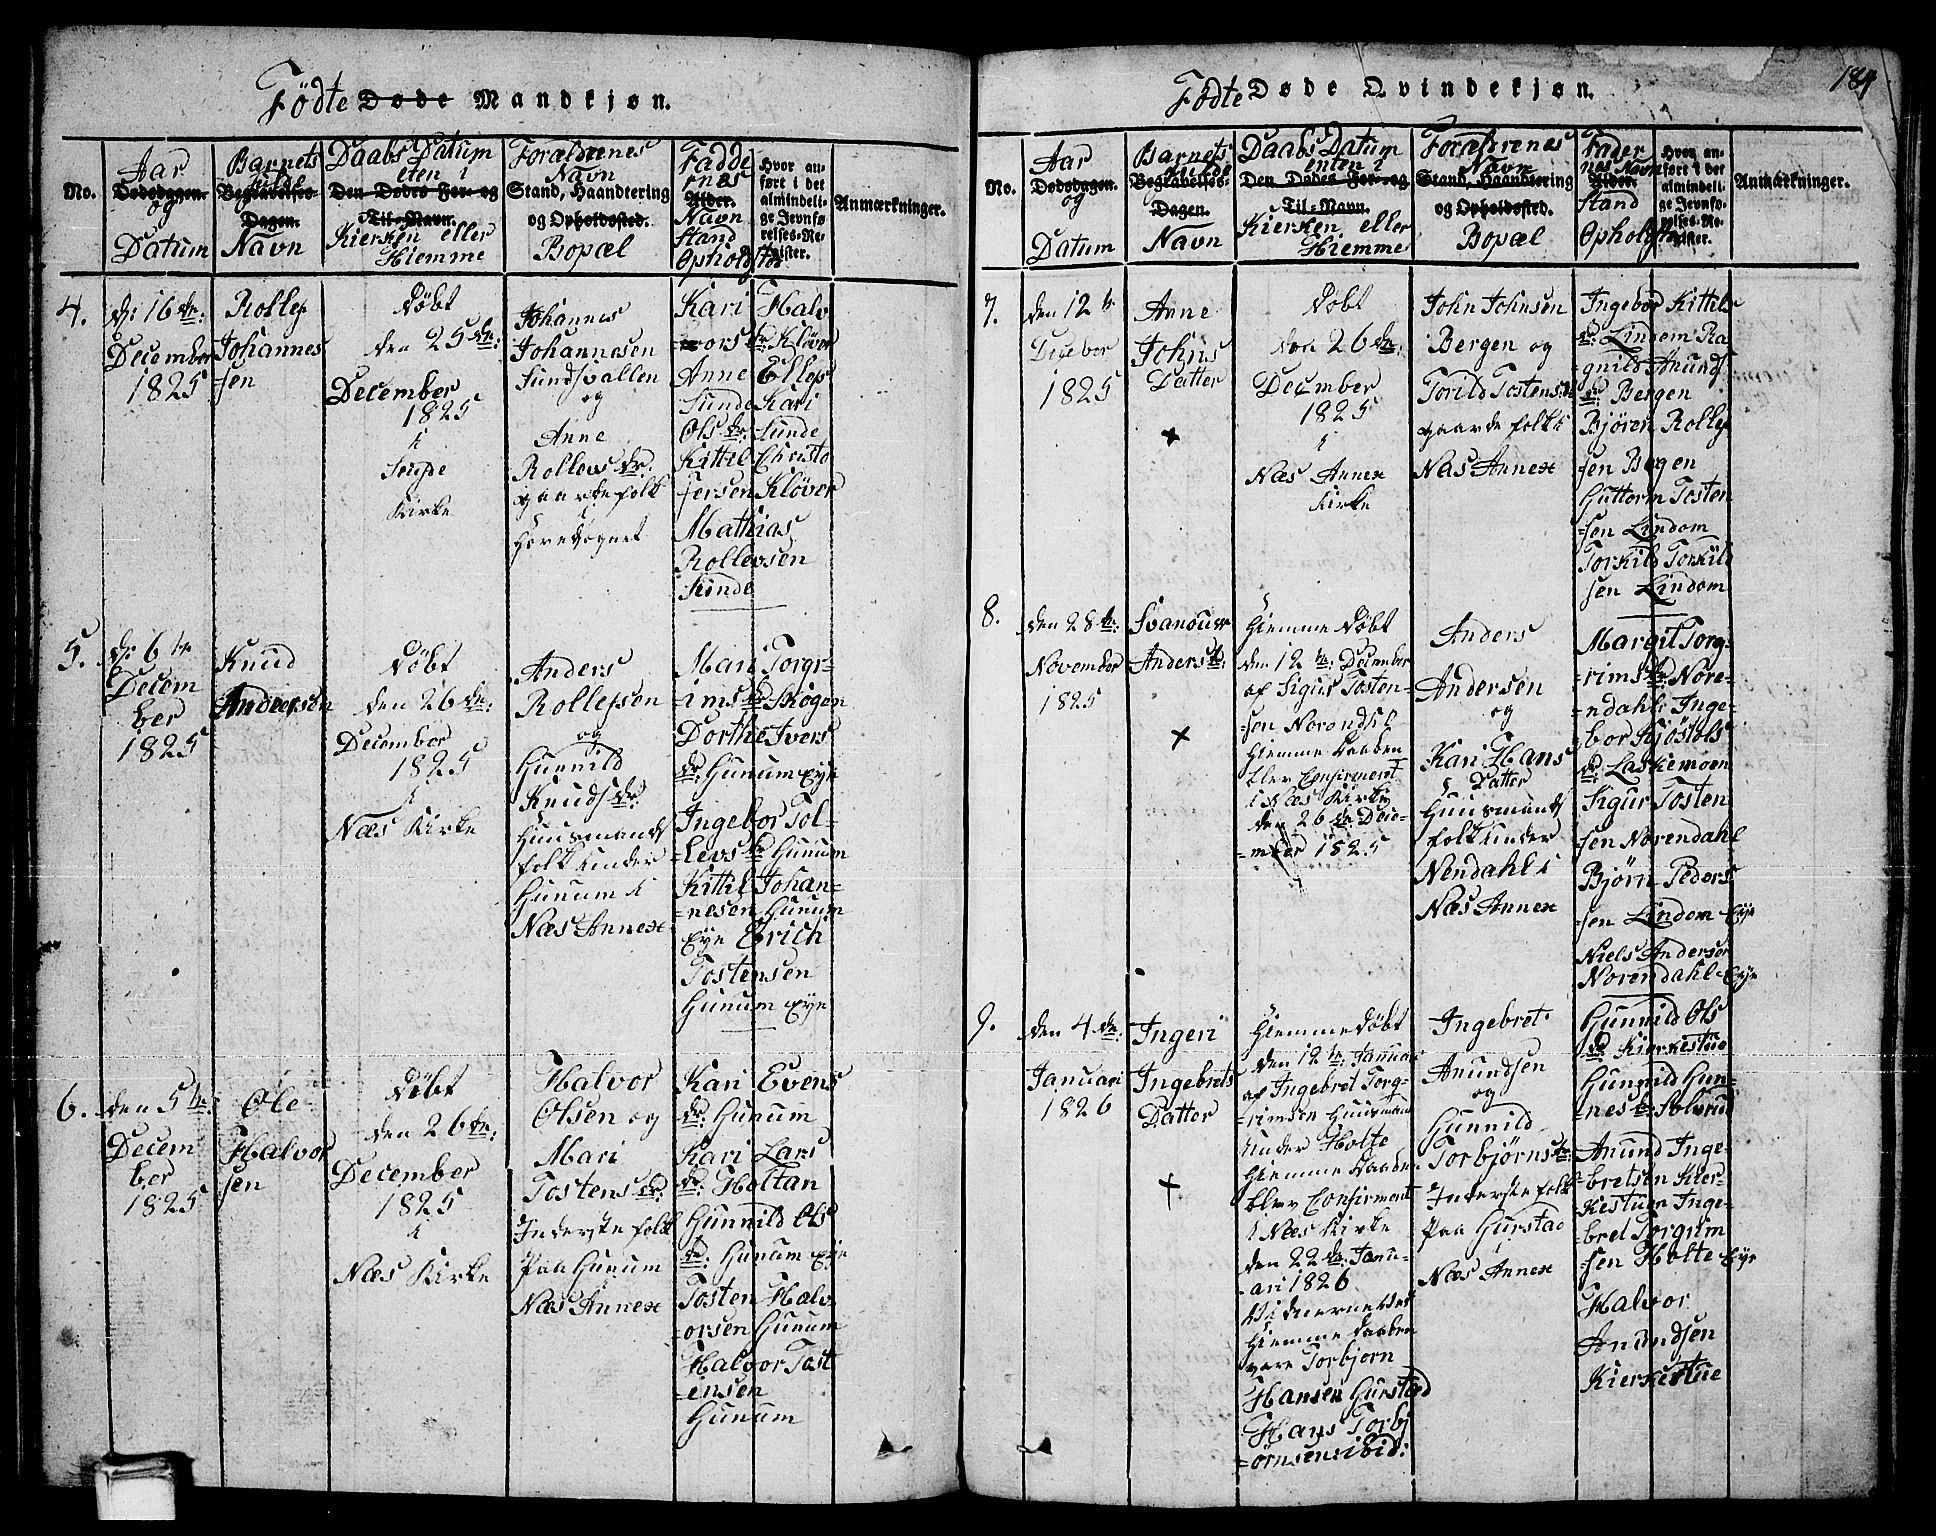 Fødte Døde Mandkjøn.
No.
Aar
Dødsdagen.
og
Datum
Barnets
Fulde
Begravelses-
Dagen.
Navn
Daabs Datum
eten i
Den Dødes For- og
Til-Navn.
Kierken eller
Hiemme
Forældrenes
Navn
Stand, Haandtering
og Opholdssted.
Bopæl
Fadde
rnes
Alder.
Navn
Stand
Ophold sted
Hvor an-
ført i det
almindeli-
ge Jevnfø-
relses-Re-
gister.
Anmærkninger.
4.
d: 16 de:
December
1825
Rollef
Johannes
sen
Døbt
den 25 de:
December
1825
i
Kirke
Johannes
Johannesen
Sundsvallen
og
Anne
Rollevs dr:
gaardefolk
i
Hovedsognet
Kari Halv
vors dr: Kløver
Anne Ellefs
Sunde Kari
Ols dr: Sunde
Kittil Christo
fersen Kløver
Mathias
Rollevsen
Sunde
5.
d: 6 te
Decem
ber
1825
Knud
Andersen
Døbt
den 26 de:
December
1825
i
Næs Kirke
Anders
Rollefsen
og
Gunnild
Knuds dr:
Huusmands
folk under
Hunum i
Næs Annex
Mari Torgr-
ims dr Skogen
Dorthe Ivers
dr: Hunum Eye
Ingebor Tol-
levs dr Hunum
Kittil Johan-
=nesen Hunum
Eye Erich
Tostensen
Hunum Eye
6.
den 5 te:
Decem
ber
1825
Ole
Halvor
sen
Døbt
den 26 de:
December
1825
i
Næs Kirke
Halvor
Olsen og
Mari
Tostens dr:
Inderste folk
Paa Hunum
Næs Annex
Kari Evens
dr: Hunum
Kari Lars
dr: Holtan
Gunnild Ols
dr: Hunum Eye
Tosten Halv
=orsen Hunum
Halvor Tost
=ensen
Hunum
Fødte Døde Qvindekjøn.
184
No.
Aar
Dødsdagen.
og
Datum
Barnets
Fulde
Begravelses-
Dagen.
Navn
Daabs Datum
enten i
Den Dødes For- og
Til-Navn.
Kierken eller
Hiemme
Forældrenes
Navn
Stand, Haandtering
og Opholdsted.
Bopæl
Fader
nes Navn
Alder.
Stand
Opholds
Hvor an-
ført i det
almindeli-
ge Jevnfø-
relses-Re-
gister.
Anmærkninger.
7.
den 12 te
1825
Anne
Johns
Datter
+
Døbt
den 26 de:
December
1825
i
Næs Annex
Kirke
John Johnsen
Bergen og
Torild Tostens dr
gaarde folk i
Næs Annex
Ingebor Kittils
dr: Lindem Ra
gnild Anunds
dr: Bergen
Bjøren Rollef
sen Bergen
Guttorm Tosten
=sen Lindom
Torkild Torkild
sen Lindom
8.
den 28 de:
November
1825
Anders dr:
+
Hiemme Døbt
den 12 te: December
af Sigur Tosten-
=sen Norendal
Hiemme Daaben
blev Confirmert
i Næs Kirke
den 26 de: Dece-
=mber 1825
Anders
Andersen
og
Kari Hans
Datter
Huusmands
folk under
Nendahl i
Næs Annex
Margit Torg-
rims dr: Nore-
=ndahl: Inge-
bor Kjøstols
dr: Laskemoen
Sigur Tosten
sen Norendahl
Bjørn Peders
=sen Lindom Eye
Niels Andersen
Norendahl Eye
9.
den 4 de:
Januari
1826
Ingeri
Ingebrets
Datter
+
Hiemme døbt
den 12 te: Januar
af Ingebret Torg-
=rimsen Huusmand
under Holte
Hiemme Daaben
blev Confirmert
i Næs Kirke
den 22 de: Janu-
ari 1826
Vidnerne ved
Hiemme Daaben
vare Torbjorn
Hansen Gurstad
Hans Torbj
=ørnsen ibid:
Ingebret
Anundsen
og
Gunnild
Torbjørns dr:
Inderste folk
Paa Gurstad
i
Næs Annex
Gunnild Ols
dr Kierkestue
Gunnild Gun-
=nes dr Solvrud
Anund Inge-
bretsen Kier-
Kestuen Inge-
bret Torgrim
=sen Holte Eye
Halvor
Anundsen
Kierkestue